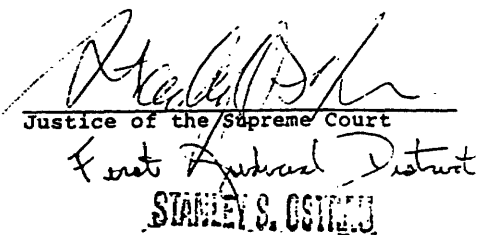 Justice of the Supreme Court
First Judicial District
STANLEY S. OSTRAU